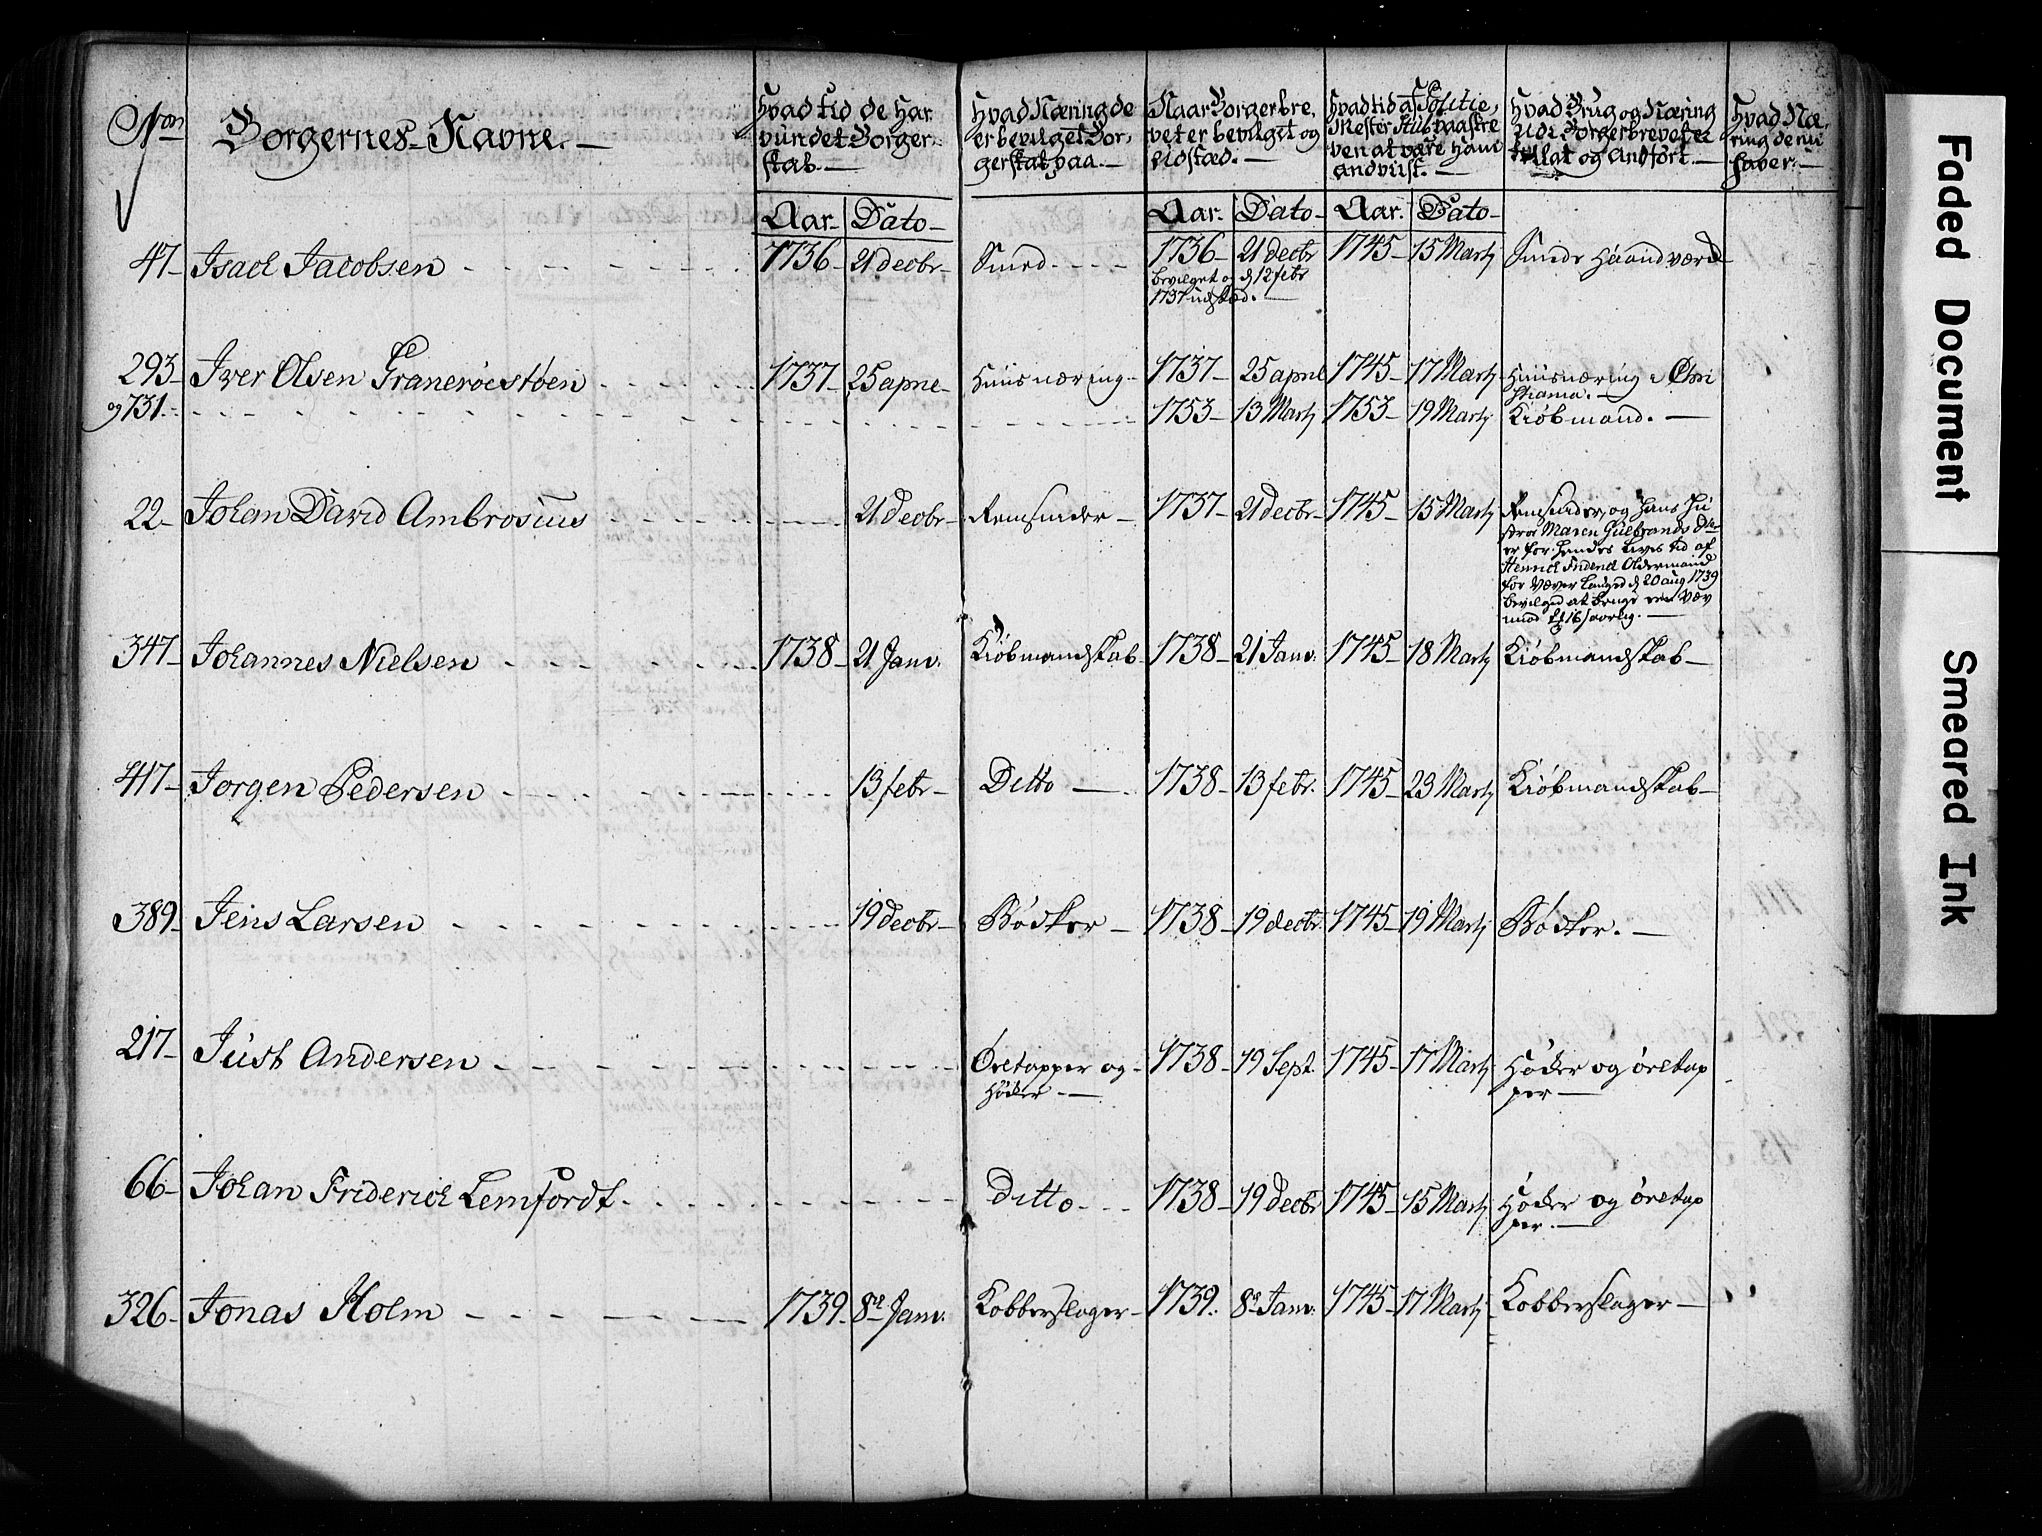 Nron
Borgernes Navne. —
Hvad tid de har
vundet Borger-
skab. —
Hvad Næring de
er bevilget Bor-
gerskab paa. —
Naar Borgerbre,
vet er bevilget og
udstæd. —
Hvad tid af Politie,
Mester Stub paaskre
ven at være ham
andviist. —
Hvad Brug og Næring
udi Borgerbrevet er
tillat og Anført. —
Hvad Næ,
ring de nu
haver. —
Aar. Dato — Aar. Dato — Aar. Dato —
47 — Isach Jacobsen 1736 — 21 decbr — Smed 1736 — 21 decbr 1745 — 15 Martj Smede Haandværck
bevilget og d 12 febr
1737 udstæd. —
293 — Iver Olsen Granerøestøen 1737 — 25 aprıl — Huusnæring — 1737 — 25 april 1745 — 17 Martj Huusnæring i Chri
stiania. —
og 731. 1753 — 13 Martj 1753 — 19 Martj Kiøbmand. —
22 — Johan David Ambrosius 21 Decbr — Remsnider — 1737 — 21 decbr — 1745 — 15 Martj Remsnider, og Hans Hu
stroe Maren Gulbrands dtr
er for hendes Livs tid af
Henrich Friderich Oldermand
for Væver Lauged d 20 aug 1739
bevilged at bruge een Væv
mod 16 / aarlig. —
347 — Johannes Nielsen 1738 — 21 Janv. Kiøbmandskab — 1738 — 21 Janv. 1745 — 18 Martj Kiøbmandskab —
417 — Jørgen Pedersen 13 febr — Ditto — 1738 — 13 febr. 1745 — 23 Martj Kiøbmandskab —
389 — Jens Larsen 19 decbr — Bødker — 1738 — 19 decbr. 1745 — 19 Martj Bødker. —
217 — Just Andersen Øretapper og 1738 — 19 Sept. 1745 — 17 Martj Høcker og øretap
Høcker — per —
66 — Johan Friderich Lemfordt. Ditto 1738 — 19 Decbr 1745 — 15 Martj Høcker og øretap
per. —
326 — Jonas Holm 1739 — 8de Janv. Kobberslager — 1739. 8de Janv. 1745 — 17 Martj Kobberslager —
Faded Document
Smeared Ink